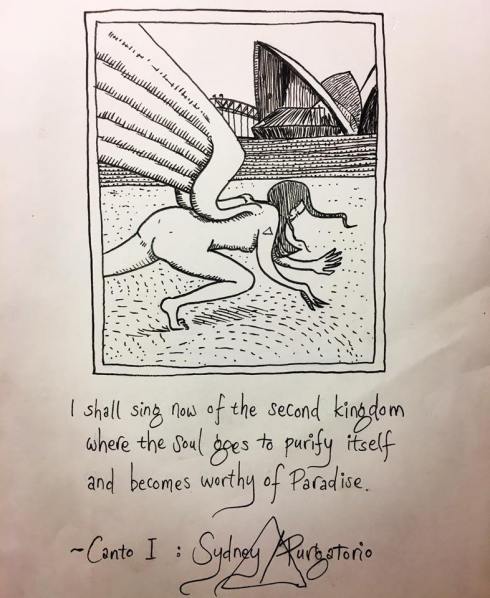 I shall sing now of the second kingdom
where the soul goes to purify itself
and becomes worthy of Paradise.
~Canto I : Sydney Purgatorio